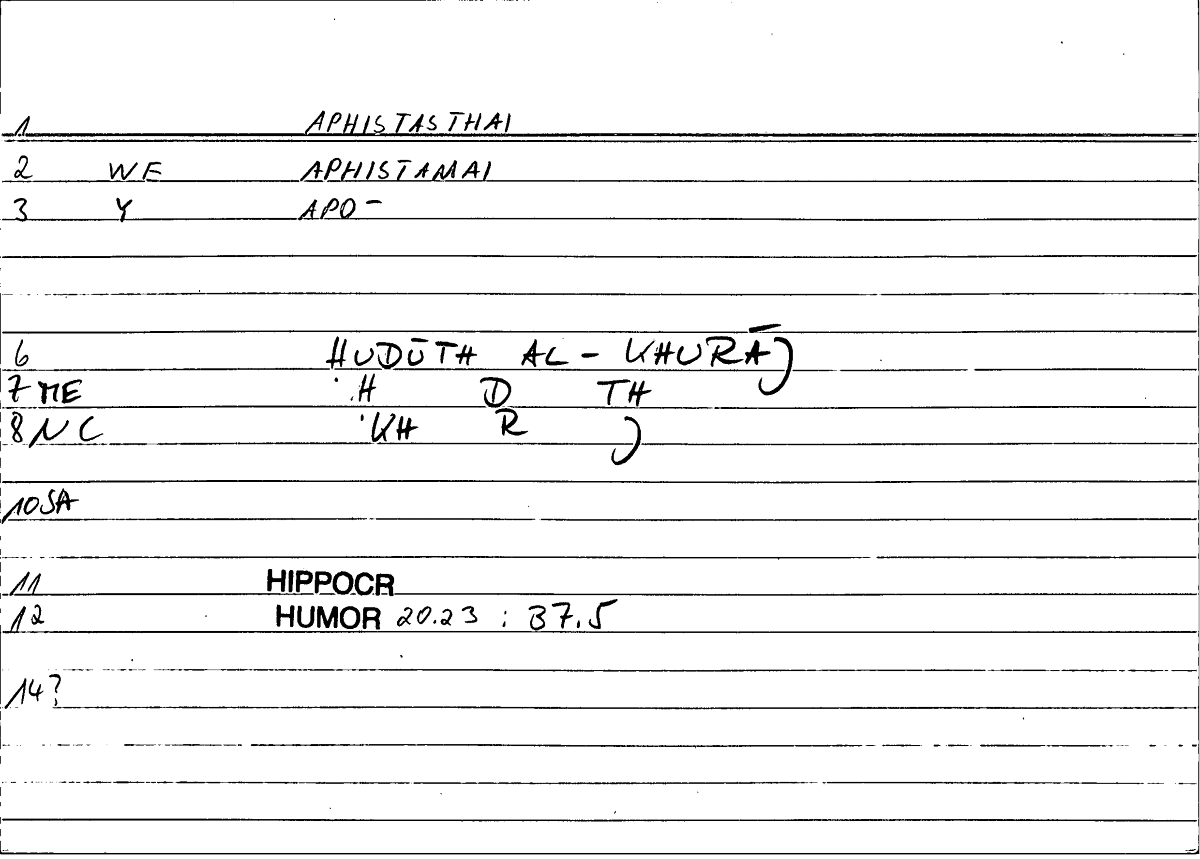 1 APHISTASTHAI
2 WE APHISTAMAI
3 Y APO-
6 HUDŪTH AL-KHURĀJ
7 ME .H D TH
8 NC 'KH R J
10 SA
11 HIPPOCR
12 HUMOR 20.23 : 37.5
14?